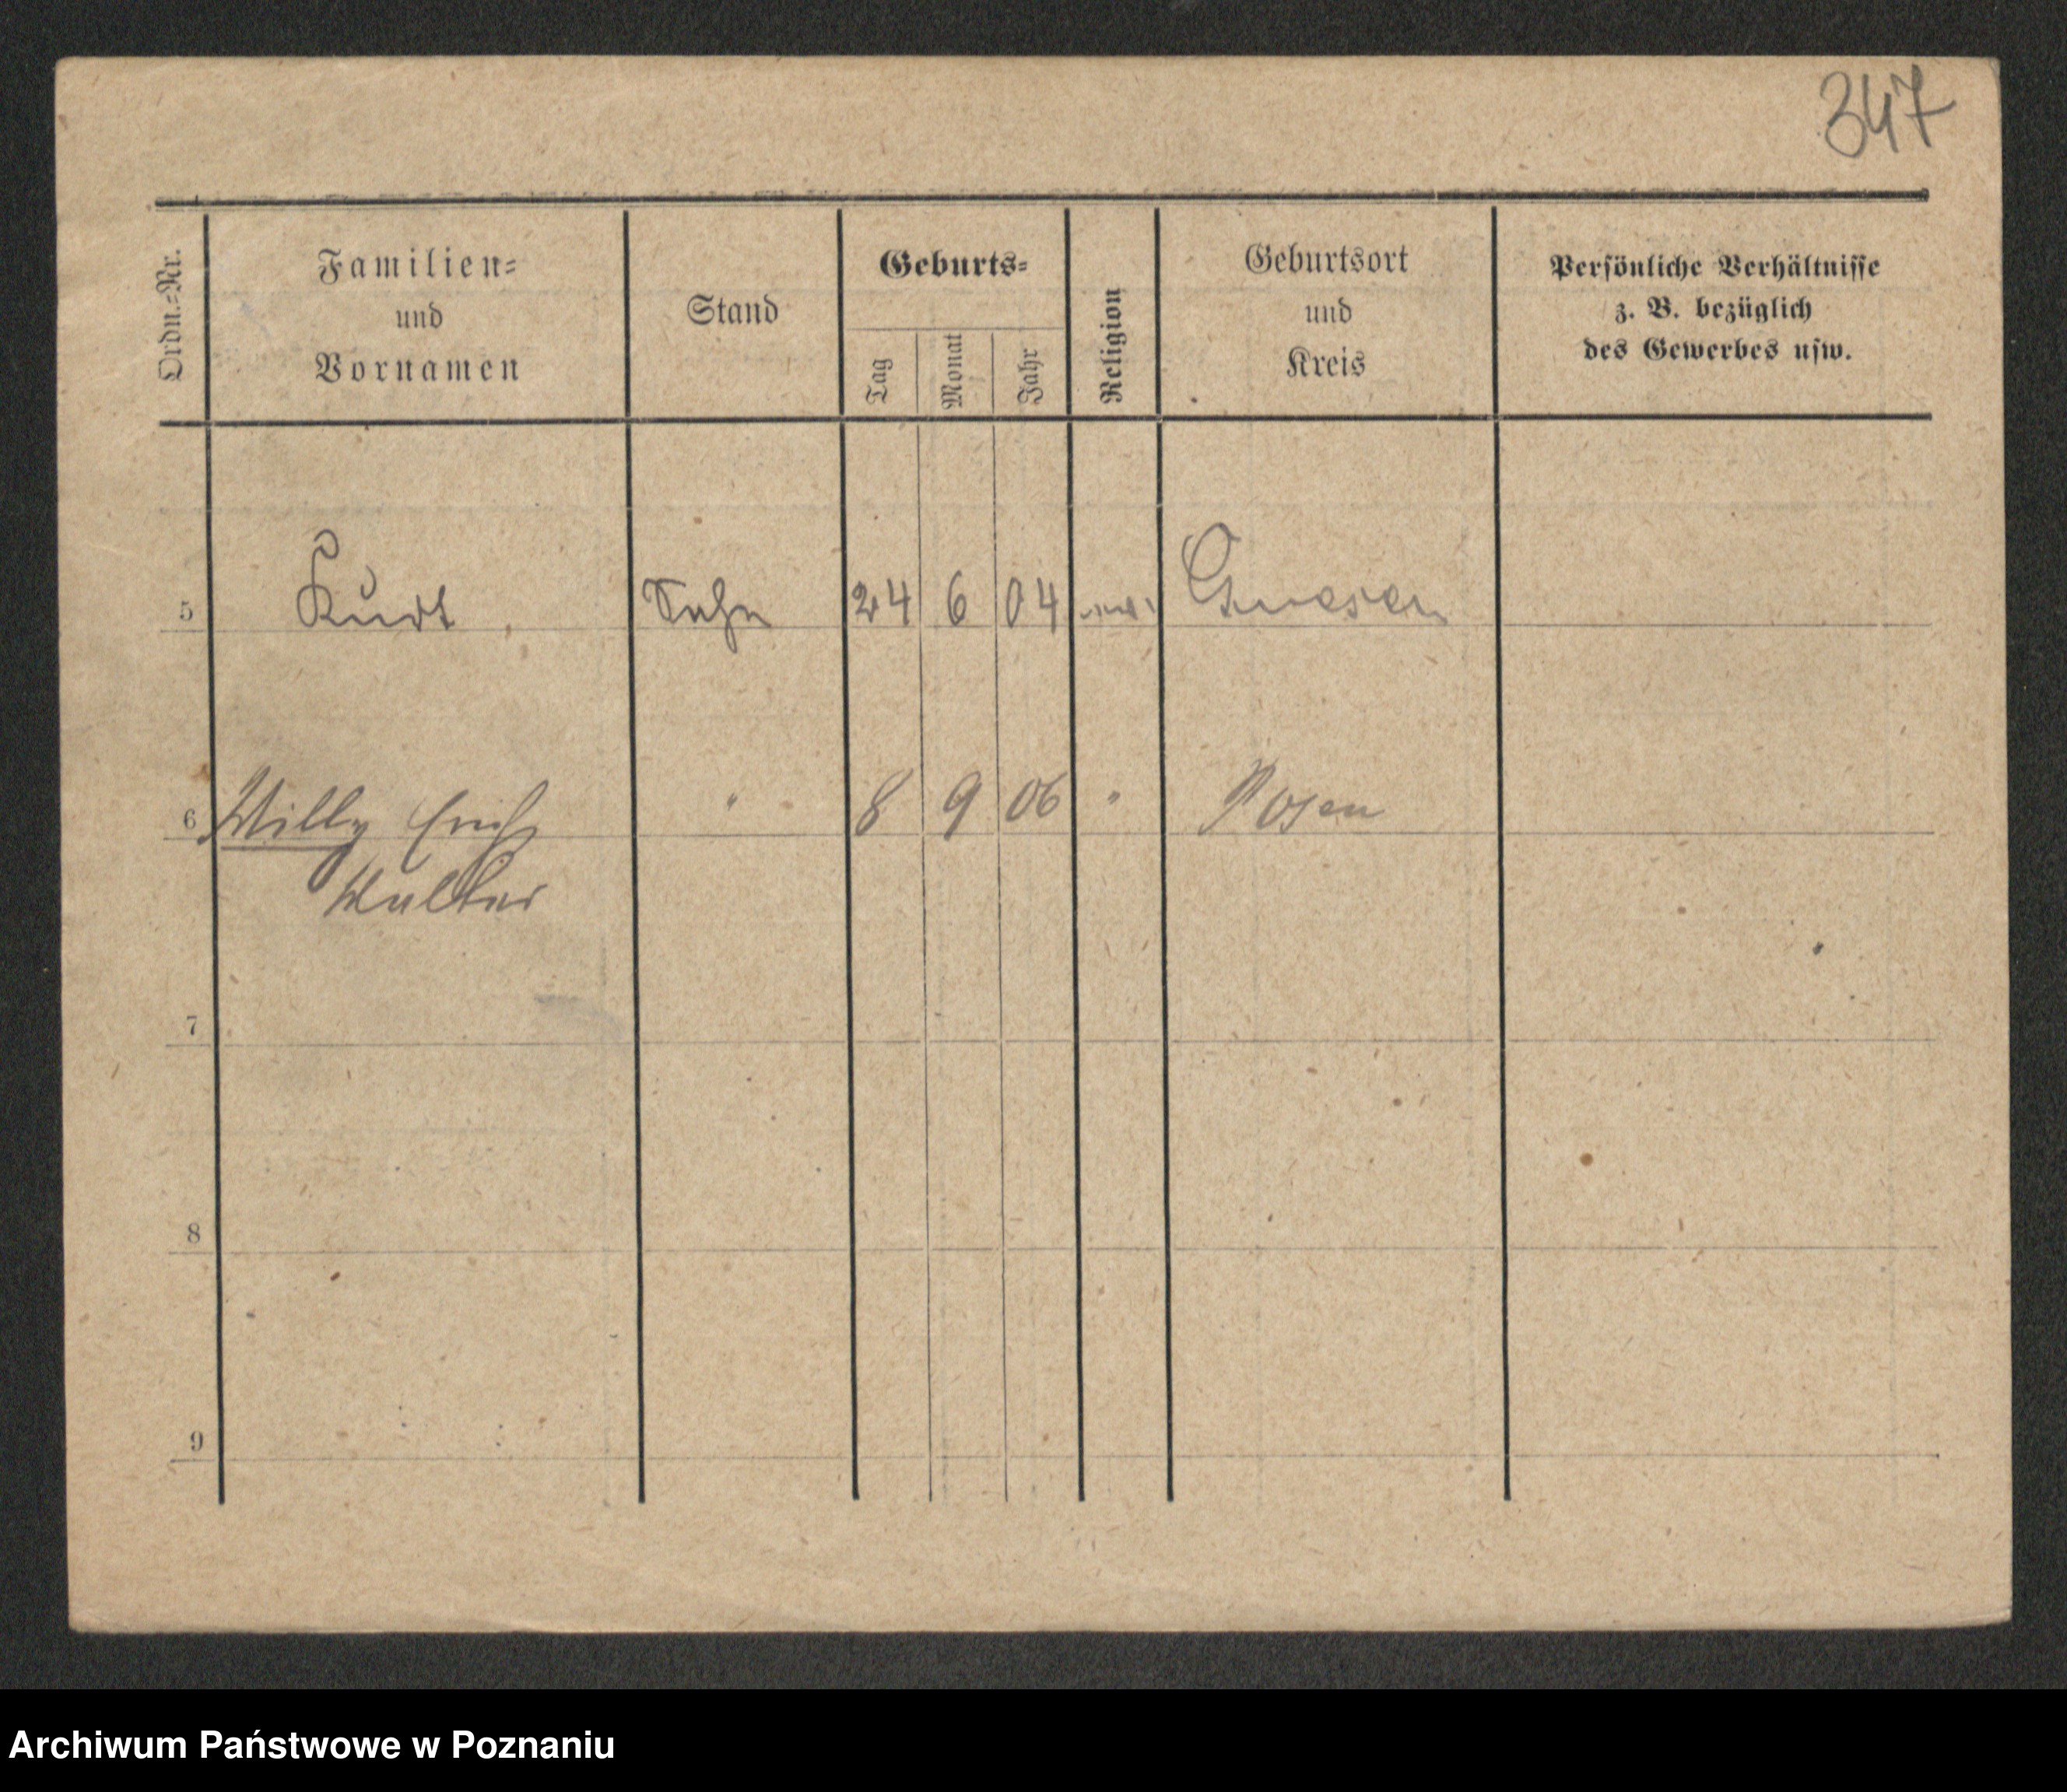 347
Ordn.-Nr.
Familien-
und
Vornamen
Stand
Geburts-
Tag
Monat
Jahr
Religion
Geburtsort
und
Kreis
Persönliche Verhältnisse
z. B. bezüglich
des Gewerbes usw.
5 Kurt Sohn 24 6 04 Gnesen
6 Willy Erich " 8 9 06 " Posen
Walter
7
8
9
Archiwum Państwowe w Poznaniu